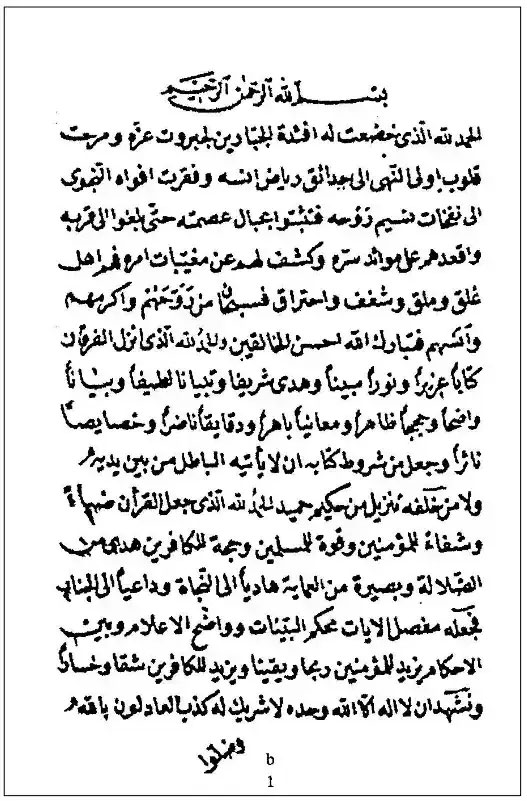 بسم الله الرحمن الرحيم
الحمد لله الذي خضعت له افئدة الجبارين لجبروت عزه ومرحت
قلوب اولى النهى الى حدائق رياض انسه وفغرت افواه التقوى
الى نفحات نسيم روحه فتشبثوا بحبال عصمته حتى بلغوا الى قربه
واقعدهم على موائد سره وكشف لهم عن مغيبات امره فهم اهل
غلق وملق وشغف واحتراق فسبحان من روحهم واكرمهم
وآنسهم فتبارك الله احسن الخالقين والحمد لله الذي انزل الفرقان
كتاباً عزيزاً ونوراً مبيناً وهدى شريفا وتبيانا لطيفاً وبياناً
واضحاً وحججاً ظاهراً ومعانياً باهراً ودقايقاً ناضراً وخصايصاً
نائراً وجعل من شروط كتابه ان لا يأتيه الباطل من بين يديه
ولا من خلفه تنزيل من حكيم حميد الحمد لله الذي جعل القرآن ضياءً
وشفاءً للمؤمنين وقوة للمسلمين وحجة للكافرين هدى من
الضلالة وبصيرة من العماية هادياً الى النجاة وداعياً الى الجنان
فجعله مفصل الايات محكم البينات وواضح الاعلام ومبين
الاحكام يزيد للمؤمنين ربحا ويقينا ويزيد للكافرين شقا وخساراً
ونشهد ان لا اله الا الله وحده لا شريك له كذب العادلون بالله
وضلوا
b
1